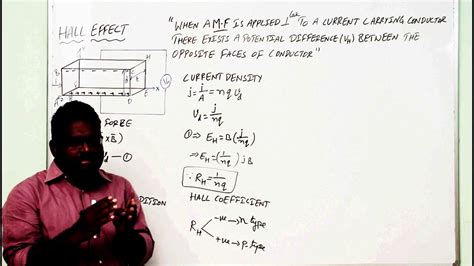 HALL EFFECT
"WHEN A M.F IS APPLIED ⊥lar TO A CURRENT CARRYING CONDUCTOR
THERE EXISTS A POTENTIAL DIFFERENCE (VH) BETWEEN THE
OPPOSITE FACES OF CONDUCTOR"
CURRENT DENSITY
j = i/A = nqVd
Vd = j/nq
① ⇒ EH = B(j/nq)
⇒ EH = (1/nq) jB
∴ RH = 1/nq
HALL COEFFICIENT
RH
-ve → n type
+ve → p type
VH
x
E
D
H
× B)
d — ①
DITION